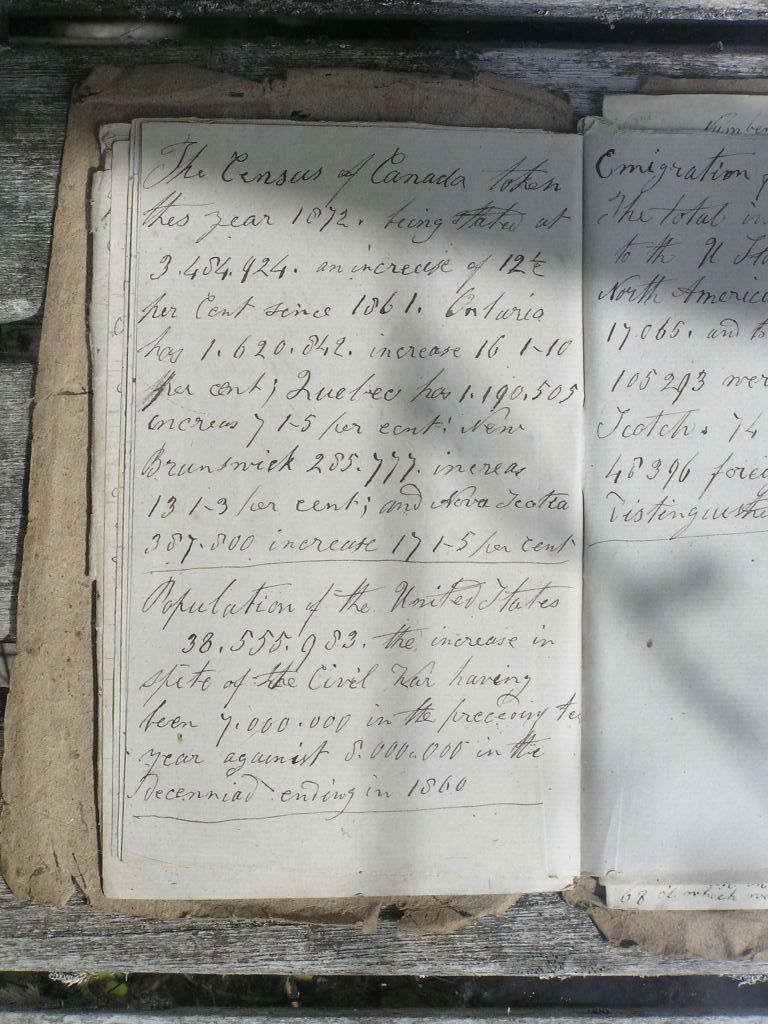 The Census of Canada token
this year 1872. being stated at
3.484.924. an increase of 12½
per Cent since 1861. Ontario
has 1.620.842. increase 16 1-10
per cent; Quebec has 1.190.505
increas 7 1-5 per cent: New
Brunswick 285.777. increas
13 1-3 per cent; and Nova Scotia
387.800 increase 17 1-5 per cent
Population of the United States
38.555.983. the increase in
spite of the Civil War having
been 7.000.000 in the preceding te
year against 8.000.000 in the
decenniad ending in 1860
Number
Emigration
The total in
to th U Sta
North America
17065. and
105293 wer
Scotch. 74
48396 forei
Distinguishe
68 of which